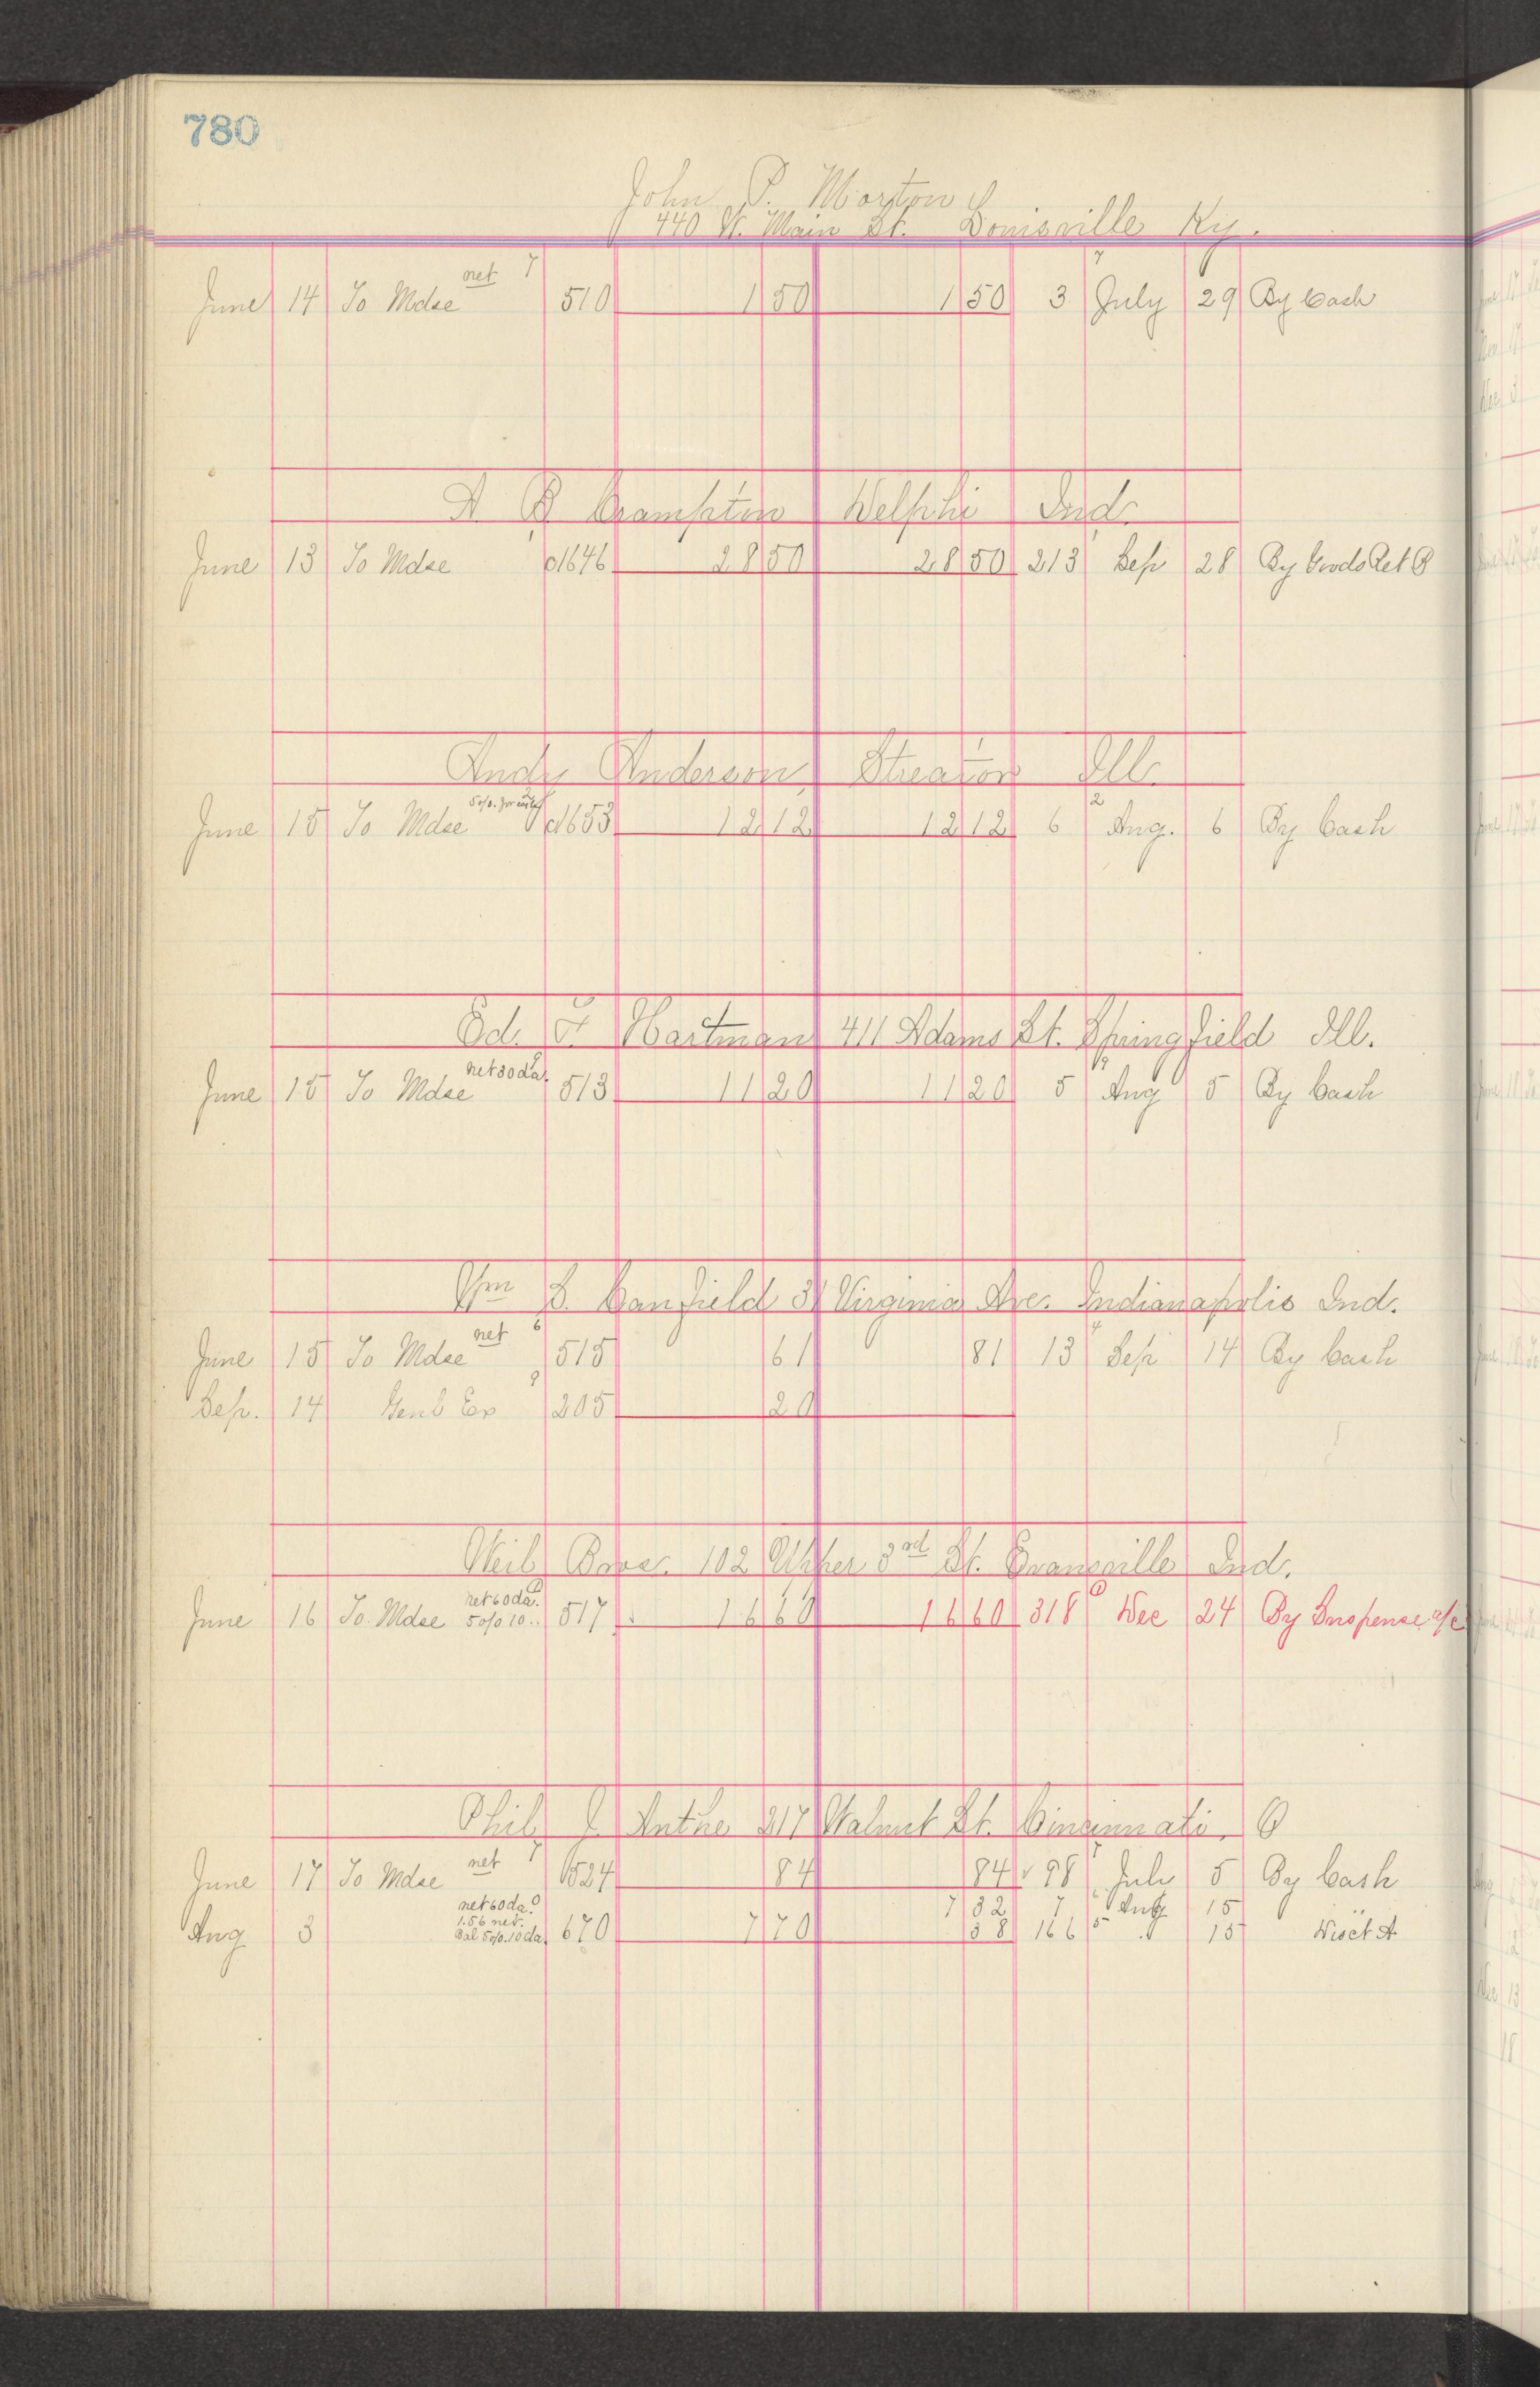 780
John P. Morton
440 W. Main St. Louisville Ky.
net 7 7
June 14 To Mdse 510 1 50 1 50 3 July 29 By Cash
A B Crampton Delphi Ind.
June 13 To Mdse c1646 28 50 28 50 213 Sep 28 By Goods Ret B
Andy Anderson Streator Ill.
June 15 To Mdse c1653 12 12 12 12 6 Aug. 6 By Cash
Ed. F. Hartman 411 Adams St. Springfield Ill.
net 30 da.
June 15 To Mdse 513 11 20 11 20 5 Aug 5 By Cash
Wm B. Canfield Virginia Ave. Indianapolis Ind.
net 6
June 15 To Mdse 515 61 81 13 Sep 14 By Cash
Sep. 14 Genl Ex 205 20
Weil Bros. 102 Upper 3rd St. Evansville Ind.
net 60 da.
June 16 To Mdse 5 o/o 10 .. 517 16 60 16 60 318 Dec 24 By Suspense a/c
Phil J. Anthe 217 Walnut St. Cincinnati, O
net 7
June 17 To Mdse 524 84 84 98 July 5 By Cash
net 60 da. 7 32 7 Aug 15
1.56 net.
Aug 3 Bal 5 o/o. 10 da. 670 7 70 38 166 15 Disct A